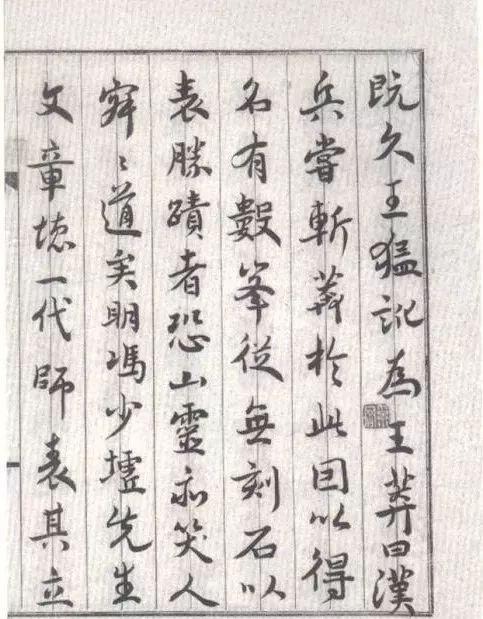 既久王猛訛為王莽曰漢
兵嘗斬莽於此因以得
名有數峯從無刻石以
表勝蹟者恐山靈亦笑人
道矣明馮少墟先生
文章德一代師表其立